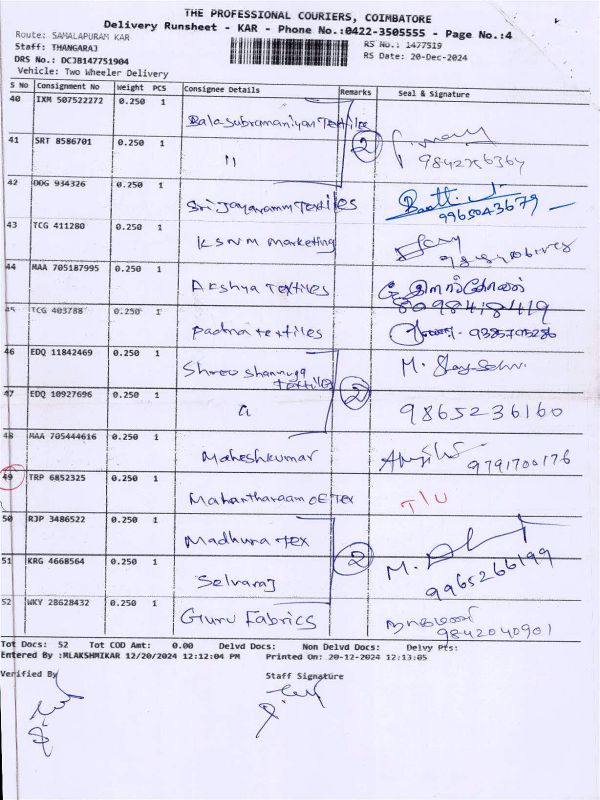 THE PROFESSIONAL COURIERS, COIMBATORE
Delivery Runsheet - KAR - Phone No.:0422-3505555 - Page No.:4
Route: SAMALAPURAM KAR
RS No.: 1477519
Staff: THANGARAJ
RS Date: 20-Dec-2024
DRS No.: DCJB147751904
Vehicle: Two Wheeler Delivery
S No Consignment No Weight PCS Consignee Details Remarks Seal & Signature
40 IXM 507522272 0.250 1 Balasubramaniyan Textiles
41 SRT 8586701 0.250 1 11 2
9842756364
42 DDG 934326 0.250 1 Sri Jayaramm Textiles
9965043679
43 TCG 411280 0.250 1 KSNM marketing
44 MAA 705187995 0.250 1 Akshya Textiles
8098418419
45 TCG 403788 0.250 1 Padna textiles 9385795286
46 EDQ 11842469 0.250 1 Shree Shanmuga Textiles M.
47 EDQ 10927696 0.250 1 11 2 9865236160
48 MAA 705444616 0.250 1 Maheshkumar 9791700176
49 TRP 6852325 0.250 1 Mahantharaam OE Tex T/U
50 RJP 3486522 0.250 1 Madhura Tex
51 KRG 4668564 0.250 1 Selvaraj 2 M.
9965266199
52 WKY 28628432 0.250 1 Guru Fabrics
9842040901
Tot Docs: 52 Tot COD Amt: 0.00 Delvd Docs: Non Delvd Docs: Delvy Pts:
Entered By :MLAKSHMIKAR 12/20/2024 12:12:04 PM Printed On: 20-12-2024 12:13:05
Verified By Staff Signature